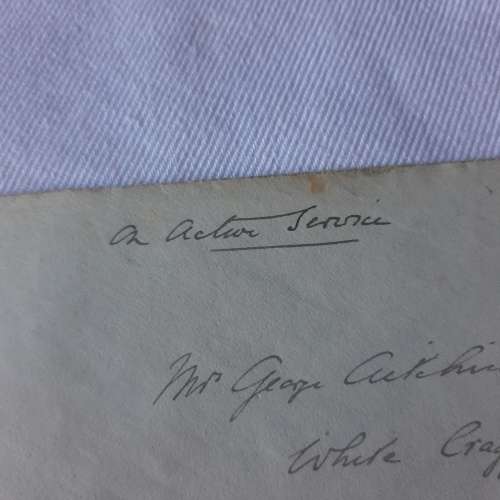 On Active Service
Mr George Aitchi
White Crag